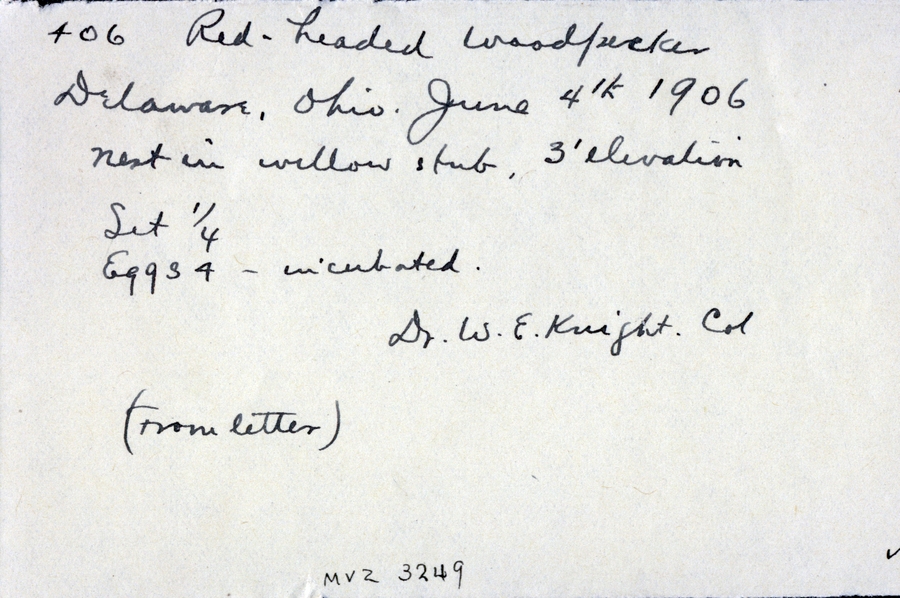 406 Red-headed Woodpecker
Delaware, Ohio. June 4th 1906
nest in willow stub, 3' elevation
Set 1/4
Eggs 4 - incubated.
Dr. W. E. Knight. Col
(From letter)
MVZ 3249